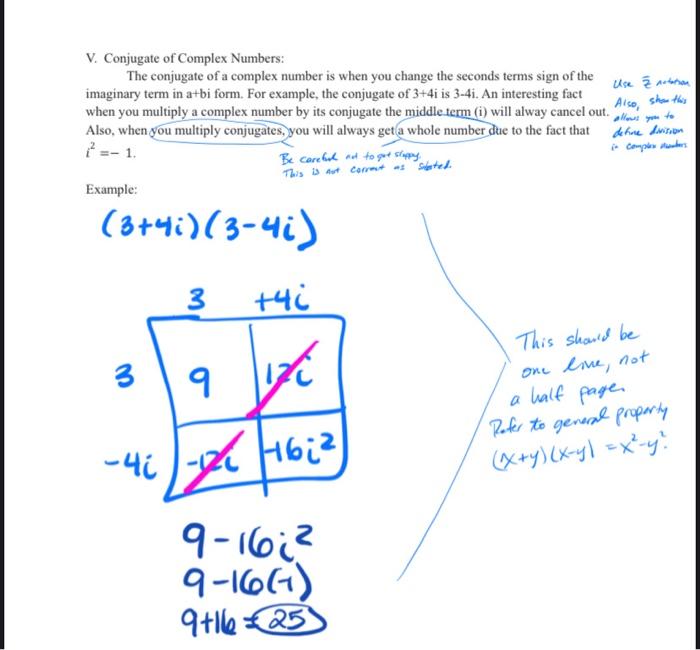 V. Conjugate of Complex Numbers:
The conjugate of a complex number is when you change the seconds terms sign of the
imaginary term in a+bi form. For example, the conjugate of 3+4i is 3-4i. An interesting fact
when you multiply a complex number by its conjugate the middle term (i) will alway cancel out.
Also, when you multiply conjugates, you will always get a whole number due to the fact that
i² =− 1.
Use z̄ notation
Also, show this
allows you to
define division
in complex numbers
Be careful not to get sloppy.
This is not correct as stated.
Example:
(3+4i)(3-4i)
3 +4i
3 9 12i
-4i -12i -16i²
9-16i²
9-16(-1)
9+16 = 25
This should be
one line, not
a half page.
Refer to general property
(x+y)(x-y) = x²-y².